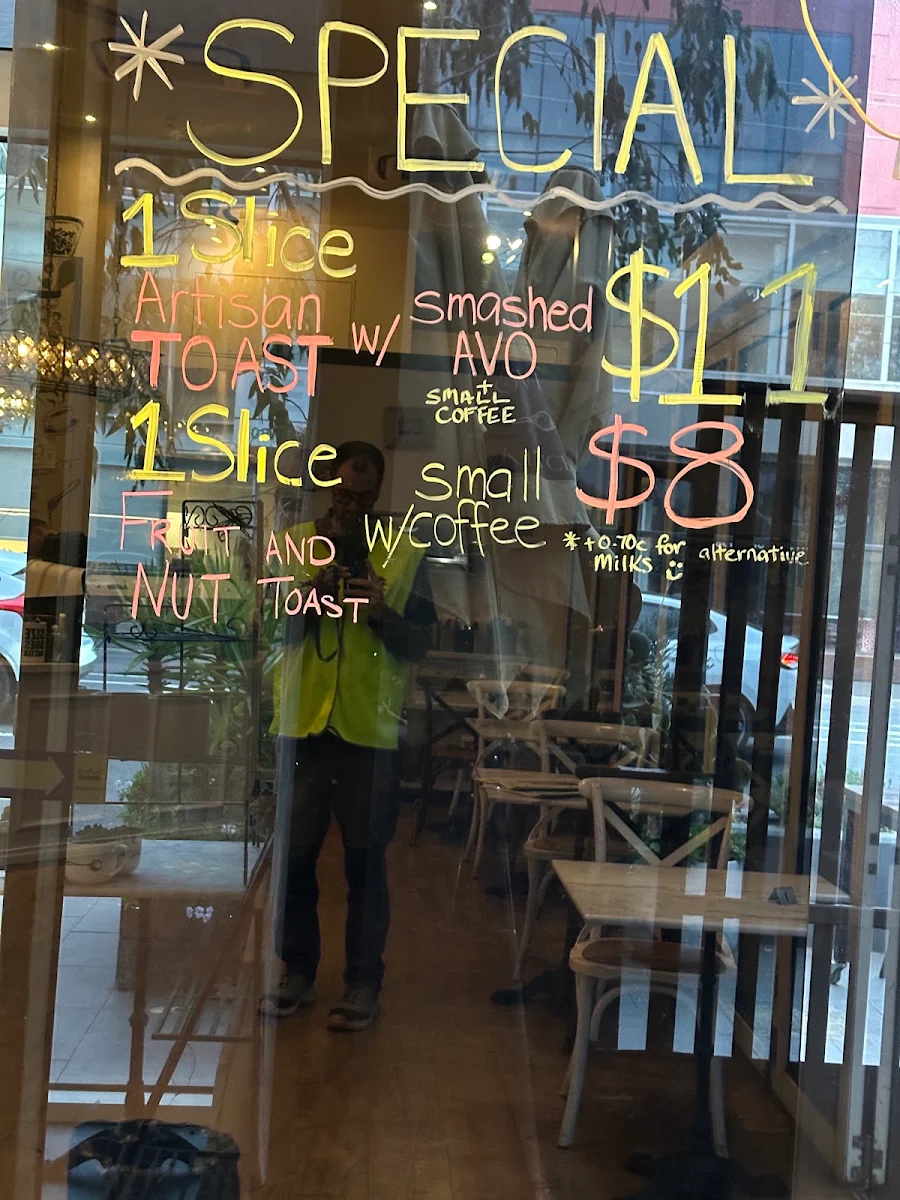 *SPECIAL*
1 Slice
Artisan
TOAST w/ smashed AVO
+
SMALL
COFFEE
$11
1 Slice
FRUIT AND
NUT TOAST
small
w/coffee
$8
*+0.70c for alternative
MILKS :)